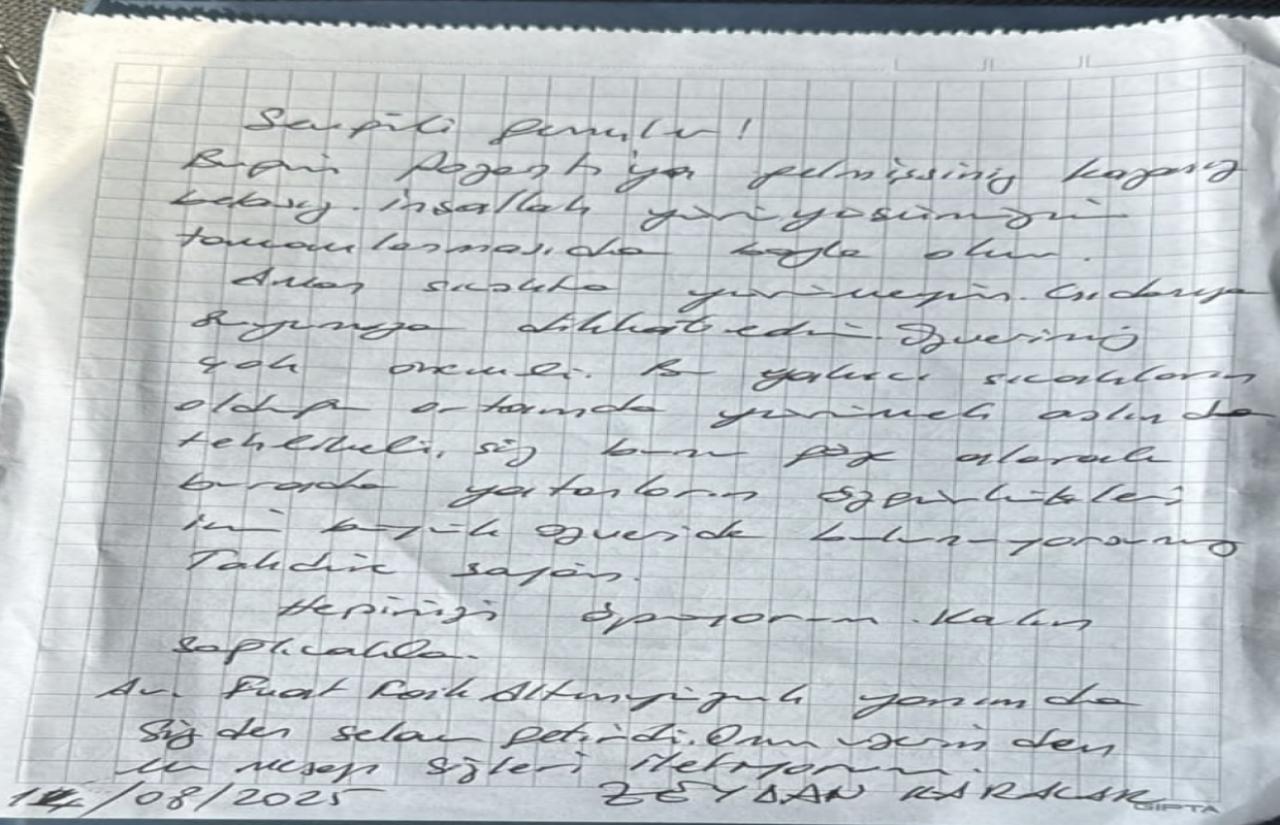 Sevgili
Bugün Pozantı'ya gelmişsiniz kazasız
belasız. inşallah yürüyüşünüzün
tamamlanması da böyle olur.
Aman sıcakta yürümeyin. Gıdanıza
suyunuza dikkat edin. Özveriniz
çok önemli. Bu yakıcı sıcakların
olduğu ortamda yürümek aslında
tehlikeli, siz bunu göze alarak
burada yatanların özgürlükleri
için büyük özveride bulunuyorsunuz
Takdire şayan.
Hepinizi öpüyorum. Kalın
sağlıcakla.
Av. Fuat yanımda
Sizden selam getirdi. Onun üzerinden
bu mesajı sizlere iletiyorum.
14/08/2025 ZEYDAN KARALAR
GIPTA